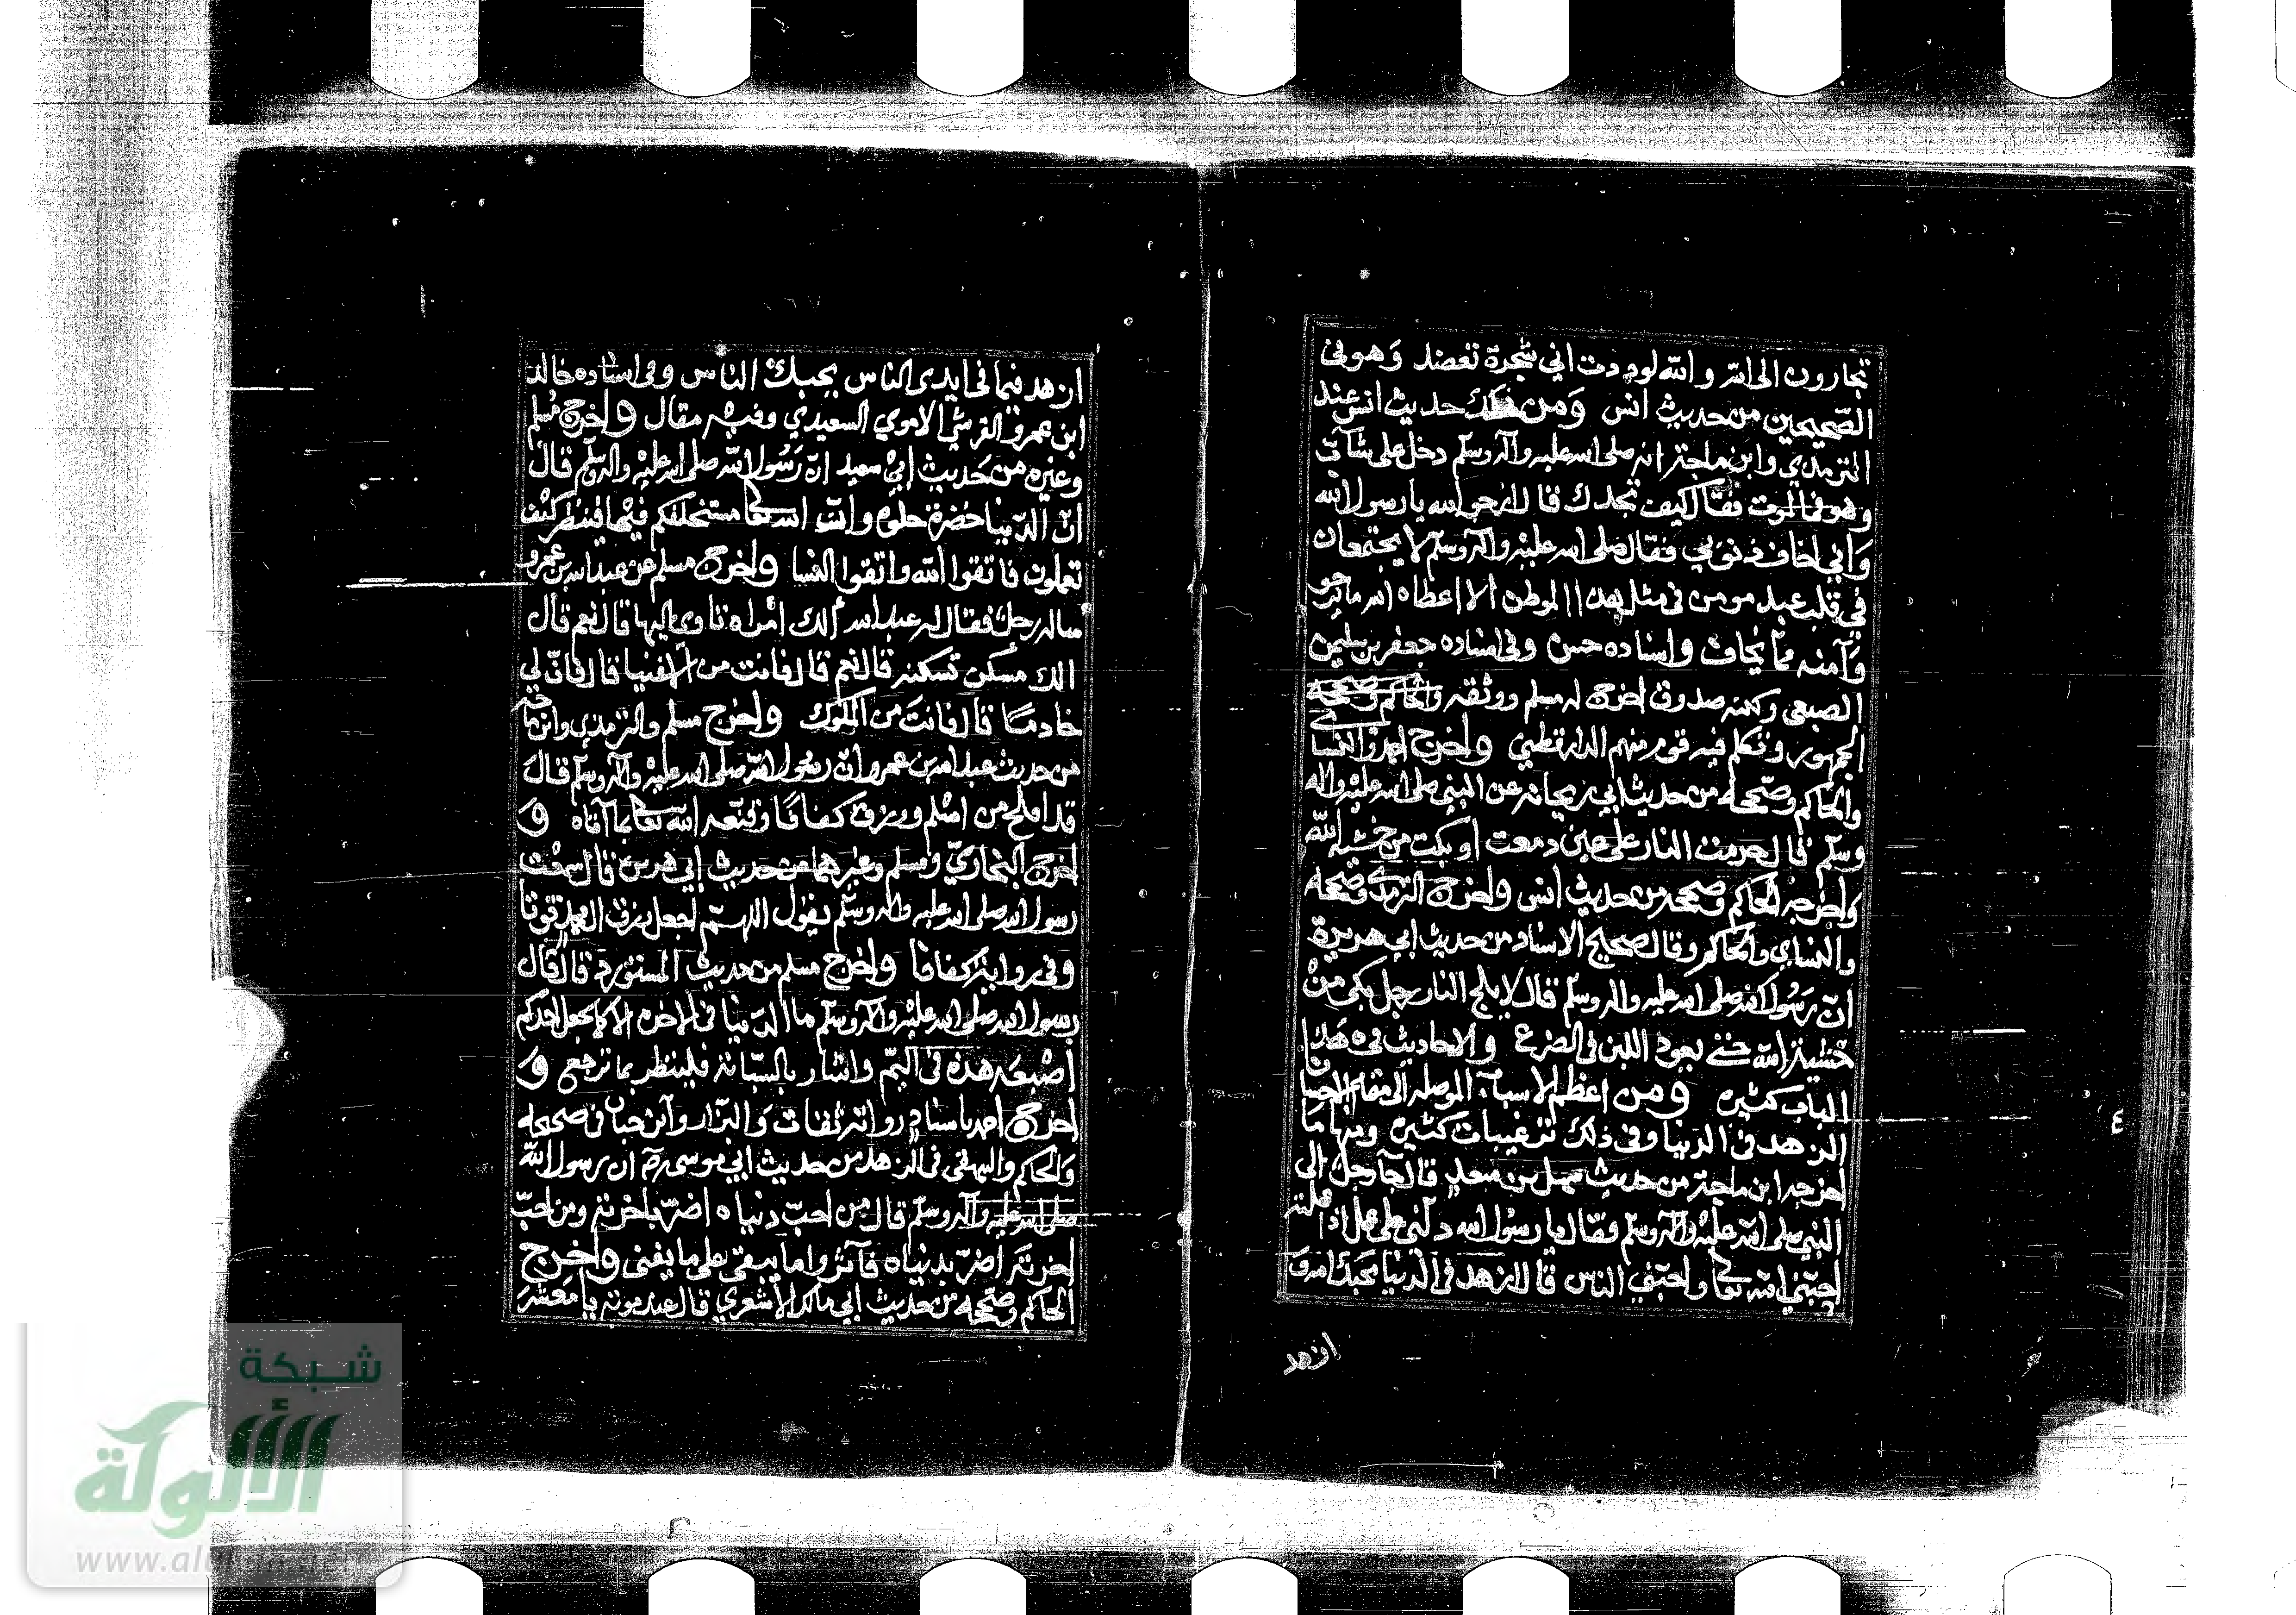 تجارون الى الله والله لوددت اني شجرة تعضد وهو في
الصحيحين من حديث انس ومن ذلك حديث انس عند
الترمذي وابن ماجة انه صلى الله عليه وآله وسلم دخل على شاب
وهو في الموت فقال كيف تجدك قال ارجو الله يا رسول الله
واني اخاف ذنوبي فقال صلى الله عليه وآله وسلم لا يجتمعان
في قلب عبد مومن في مثل هذا الموطن الا اعطاه الله ما يرجو
وآمنه مما يخاف واسناده حسن وفي اسناده جعفر بن سليمن
الضبعي ولكنه صدوق اخرج له مسلم ووثقه
الجمهور وتكلم فيه قوم منهم الدارقطني واخرج احمد والنسا
والحاكم وصححه من حديث ابي ريحانه عن النبي صلى الله عليه واله
وسلم قال حرمت النار على عين دمعت او بكت من خشية الله
واخرجه الحاكم وصححه من حديث انس واخرج الترمذي وصححه
والنساي والحاكم وقال صحيح الاسناد من حديث ابي هريرة
ان رسول الله صلى الله عليه واله وسلم قال لا يلج النار رجل بكى من
خشية الله حتى يعود اللبن في الضرع والاحاديث في هذا
الباب كثيره ومن اعظم الاسباب الموصله الى مقام الاحسان
الزهد في الدنيا وفي ذلك ترغيبات كثيره ومنها ما
اخرجه ابن ماجة من حديث سهل بن سعد قال جآ رجل الى
النبي صلى الله عليه وآله وسلم فقال يا رسول الله دلني على عمل اذا عملته
احبني الله تعا واحبني الناس قال ازهد في الدنيا يحبك الله و
ازهد
ازهد فيما في ايدي الناس يحبك الناس وفي اسناده خالد
ابن عمرو القرشي الاموي السعيدي وفيه مقال واخرج مسلم
وغيره من حديث ابي سعيد ان رسول الله صلى الله عليه واله وسلم قال
ان الدنيا خضرة حلوه وان الله تعا مستخلفكم فيها فينظر كيف
تعملون فاتقوا الله واتقوا النسا واخرج مسلم عن عبد الله بن عمرو
ساله رجل فقال له عبد الله الك امراه تاوى اليها قال نعم قال
الك مسكن تسكنه قال نعم قال فانت من الاغنيا قال فان لي
خادما قال فانت من الملوك واخرج مسلم والترمذي وابن ماجه
من حديث عبد الله بن عمرو ان رسول الله صلى الله عليه وآله وسلم قال
قد افلح من اسلم ورزق كفافا وقنعه الله تعا بما آتاه و
اخرج البخاري ومسلم وغيرهما من حديث ابي هريره قال سمعت
رسول الله صلى الله عليه واله وسلم يقول اللهم اجعل رزق ال محمد قوتا
وفي رواية كفافا واخرج مسلم من حديث المستورد قال قال
رسول الله صلى الله عليه وآله وسلم ما الدنيا في الاخره الا كما يجعل احدكم
اصبعه هذه في اليم واشار بالسبابة فلينظر بما ترجع و
اخرج احمد باسناد رواته ثقات والبزار وابن حبان في صحيحه
والحاكم والبيهقي في الزهد من حديث ابي موسى رض ان رسول الله
صلى الله عليه وآله وسلم قال من احب دنياه اضر باخرته ومن احب
اخرته اضر بدنياه فآثروا ما يبقى على ما يفنى واخرج
الحاكم وصححه من حديث ابي مالك الاشعري قال عند موته يا معشر
٤
شبكة
الألوكة